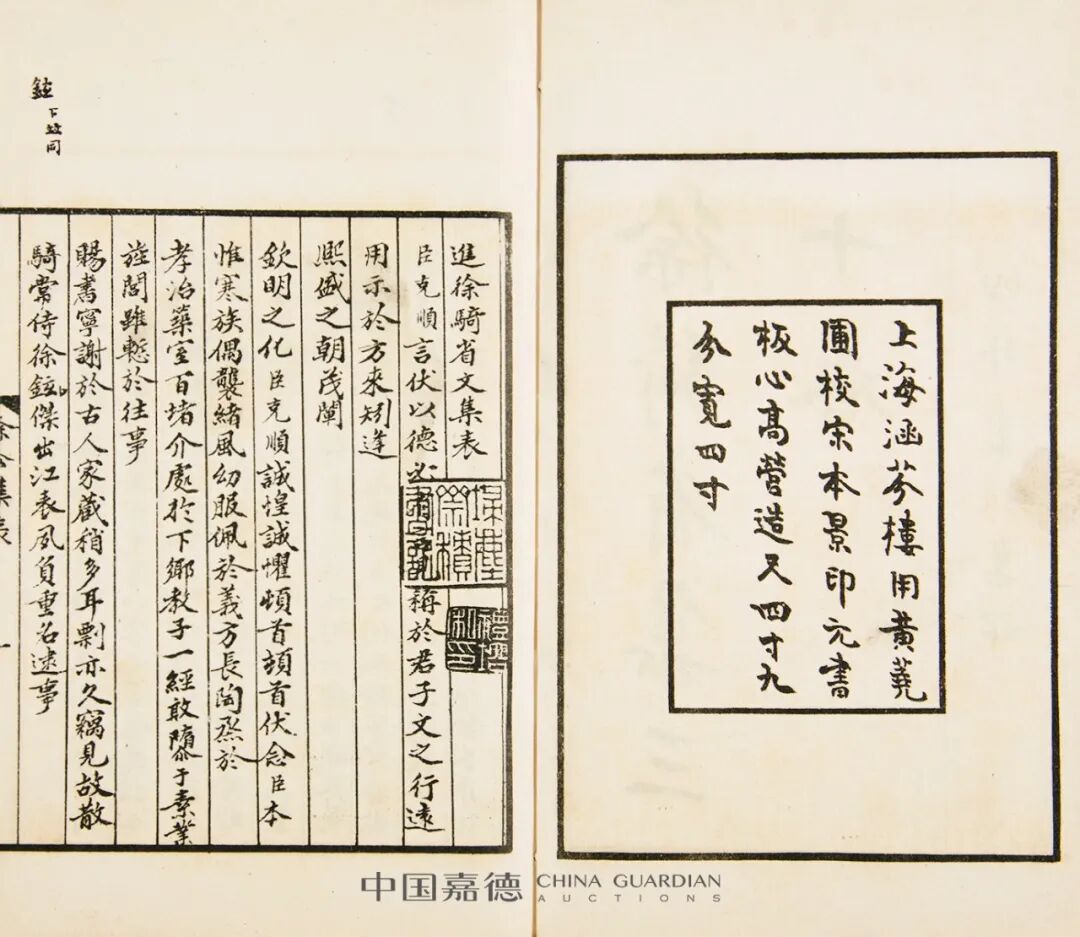 上海涵芬樓用黃蕘
圃校宋本景印元書
板心高營造尺四寸九
分寬四寸
進徐騎省文集表
臣克順言伏以德必稱於君子文之行遠
用示於方來矧逢
熙盛之朝茂闡
欽明之化臣克順誠惶誠懼頓首頓首伏念臣本
惟寒族偶襲緒風幼服佩於義方長陶烝於
孝治築室百堵介處於下鄉教子一經敢隳于素業
旌閭雖慙於往事
賜書寧謝於古人家藏稍多耳剽亦久竊見故散
騎常侍徐鉉傑出江表夙負重名逮事
鉉
下並同
中国嘉德 CHINA GUARDIAN
AUCTIONS